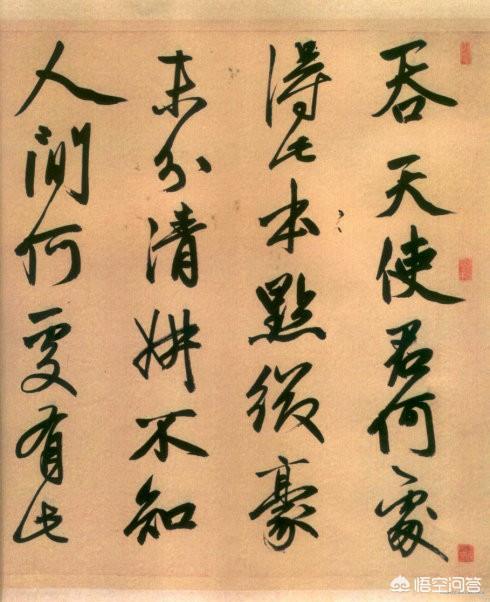 吞天使君何處
得此本點綴豪
末分清妍不知
人間何處有此
悟空问答